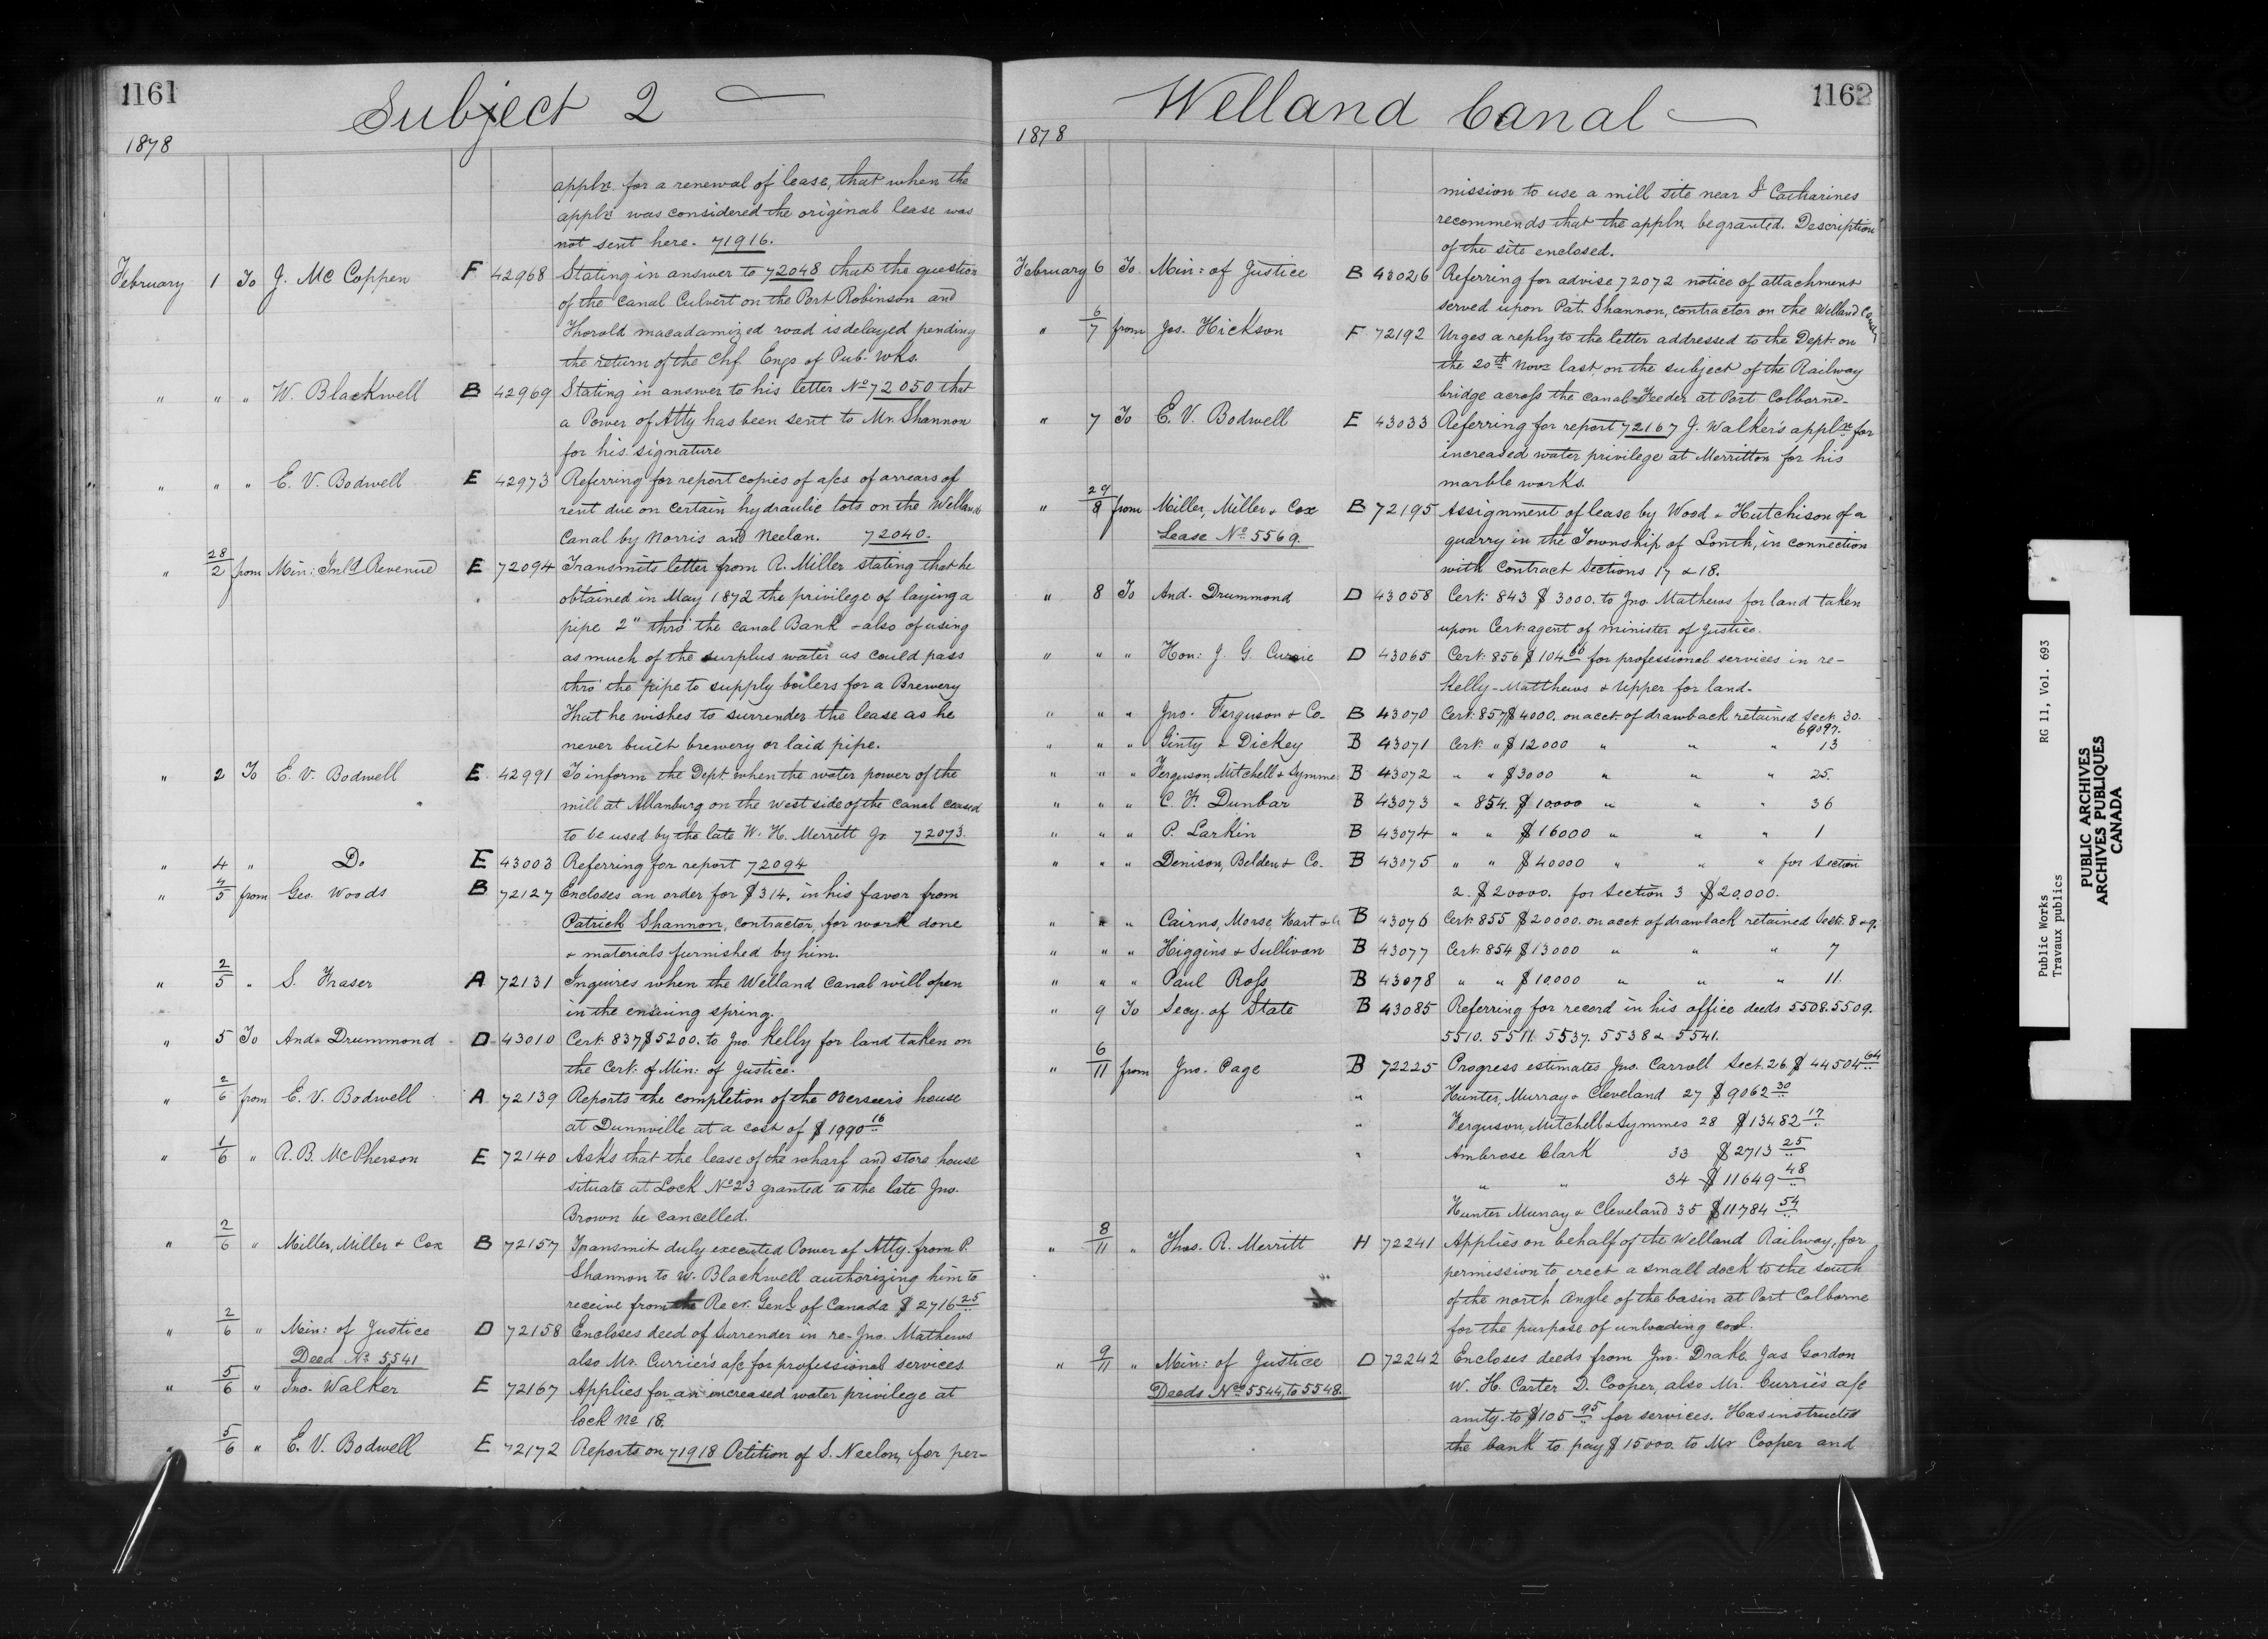 1161
Subject 2
1878
appln. for a renewal of lease, that when the
appln. was considered the original lease was
not sent here. 71916.
February 1 To J. Mc Coppen F 42968 Stating in answer to 72048 that the question
of the Canal Culvert on the Port Robinson and
Thorold macadamized road is delayed pending
the return of the Chf. Engr of Pub. Wks.
" " " W. Blackwell B 42969 Stating in answer to his letter No 72050 that
a Power of Atty has been sent to Mr. Shannon
for his signature
" " " E. V. Bodwell E 42973 Referring for report copies of a/cs of arrears of
rent due on certain hydraulic lots on the Welland
Canal by Norris and Neelon. 72040.
" 28/2 from Min: Inld Revenue E 72094 Transmits letter from R. Miller stating that he
obtained in May 1872 the privilege of laying a
pipe 2" thro' the Canal Bank - also of using
as much of the surplus water as could pass
thro' the pipe to supply boilers for a Brewery
That he wishes to surrender the lease as he
never built brewery or laid pipe.
" 2 To E. V. Bodwell E 42991 To inform the Dept. when the water power of the
mill at Allanburg on the west side of the canal ceased
to be used by the late W. H. Merritt Jr 72073.
" 4 " Do E 43003 Referring for report 72094
" 4/5 from Geo. Woods B 72127 Encloses an order for $314. in his favor from
Patrick Shannon, contractor, for work done
& materials furnished by him.
" 2/5 " S. Fraser A 72131 Inquires when the Welland Canal will open
in the ensuing spring.
" 5 To Andw Drummond D 43010 Cert. 837 $5200. to Jno. Kelly for land taken on
the Cert. of Min: of Justice.
" 2/6 from E. V. Bodwell A 72139 Reports the completion of the Overseer's house
at Dunnville at a cost of $1990 16
" 1/6 " R. B. McPherson E 72140 Asks that the lease of the wharf and store house
situate at Lock No 23 granted to the late Jno.
Brown be cancelled.
" 2/6 " Miller, Miller & Cox B 72157 Transmit duly executed Power of Atty. from P.
Shannon to W. Blackwell authorizing him to
receive from the Recr. Genl. of Canada $2716 25
" 2/6 " Min: of Justice D 72158 Encloses deed of surrender in re-Jno. Mathews
Deed No 5541 also Mr. Currier's a/c for professional services
" 5/6 " Jno. Walker E 72167 Applies for an increased water privilege at
lock No 18.
" 5/6 " E. V. Bodwell E 72172 Reports on 71918 Petition of S. Neelon, for per-
1162
Welland Canal
1878
mission to use a mill site near St Catharines
recommends that the appln. be granted. Description
of the site enclosed.
February 6 To Min: of Justice B 43026 Referring for advise 72072 notice of attachment
served upon Pat. Shannon, contractor on the Welland Canal
" 6/7 from Jos. Hickson F 72192 Urges a reply to the letter addressed to the Dept. on
the 20th Novr last on the subject of the Railway
bridge across the canal-Feeder at Port Colborne-
" 7 To E. V. Bodwell E 43033 Referring for report 72167 J. Walker's appln. for
increased water privilege at Merritton for his
marble works.
" 29/8 from Miller, Miller & Cox B 72195 Assignment of lease by Wood & Hutchison of a
Lease No 5569. quarry in the Township of Louth, in connection
with Contract Sections 17 & 18.
" 8 To And. Drummond D 43058 Cert. 843 $3000. to Jno. Mathews for land taken
upon Cert. agent of minister of Justice.
" " " Hon: J. G. Currie D 43065 Cert. 856 $104 60 for professional services in re-
Kelly-Matthews & Upper for land.
" " " Jno. Ferguson & Co. B 43070 Cert. 857 $4000. on acct. of drawback retained Sect. 30.
69097.
" " " Ginty & Dickey B 43071 Cert. " $12000 " " " 13
" " " Ferguson, Mitchell & Symmes B 43072 " " $3000 " " " 25.
" " " C. F. Dunbar B 43073 " 854. $10000 " " " 36
" " " P. Larkin B 43074 " " $16000 " " " 1
" " " Denison, Belden & Co. B 43075 " " $40000 " " " for Section
2. $20000. for Section 3 $20,000.
" " " Cairns, Morse, Hart & Co B 43076 Cert. 855 $20000. on acct. of drawback retained Sects. 8 & 9.
" " " Higgins & Sullivan B 43077 Cert. 854 $13000 " " " 7
" " " Paul Ross B 43078 " " $10,000 " " " 11.
" 9 To Secy. of State B 43085 Referring for record in his office deeds 5508. 5509.
5510. 5511. 5537. 5538 & 5541.
" 6/11 from Jno. Page B 72225 Progress estimates Jno. Carroll Sect. 26 $44504 64
" Hunter, Murray & Cleveland 27 $9062 30
" Ferguson, Mitchell & Symmes 28 $13482 17
" Ambrose Clark 33 $2713 25
" " 34 $11649 48
Hunter Murray & Cleveland 35 $11784 54
" 8/11 " Thos. R. Merritt H 72241 Applies on behalf of the Welland Railway, for
permission to erect a small dock to the south
of the north angle of the basin at Port Colborne
for the purpose of unloading coal.
" 9/11 " Min: of Justice D 72242 Encloses deeds from Jno. Drake Jas Gordon
Deeds Nos 5544, to 5548. W. H. Carter D. Cooper, also Mr. Currie's a/c
amtg. to $105 95 for services. Has instructed
the bank to pay $15000. to Mr Cooper and
Public Works RG 11, Vol. 693
Travaux publics
PUBLIC ARCHIVES
ARCHIVES PUBLIQUES
CANADA